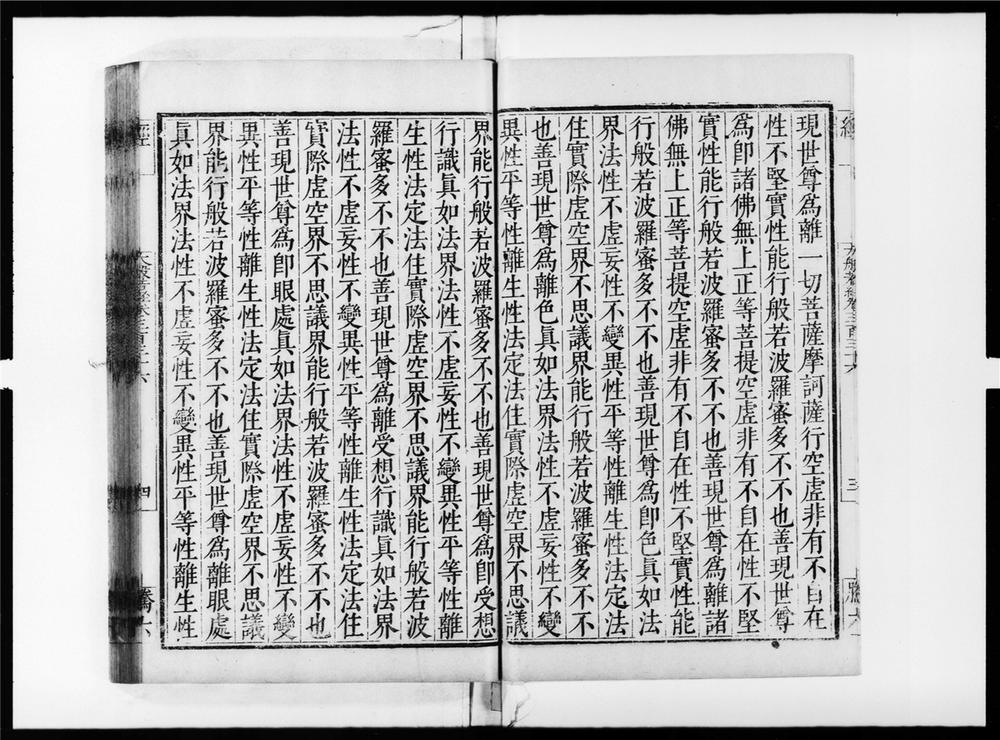 現世尊爲離一切菩薩摩訶薩行空虛非有不自在
性不堅實性能行般若波羅蜜多不不也善現世尊
爲卽諸佛無上正等菩提空虛非有不自在性不堅
實性能行般若波羅蜜多不不也善現世尊爲離諸
佛無上正等菩提空虛非有不自在性不堅實性能
行般若波羅蜜多不不也善現世尊爲卽色眞如法
界法性不虛妄性不變異性平等性離生性法定法
住實際虛空界不思議界能行般若波羅蜜多不不
也善現世尊爲離色眞如法界法性不虛妄性不變
異性平等性離生性法定法住實際虛空界不思議
界能行般若波羅蜜多不不也善現世尊爲卽受想
行識眞如法界法性不虛妄性不變異性平等性離
生性法定法住實際虛空界不思議界能行般若波
羅蜜多不不也善現世尊爲離受想行識眞如法界
法性不虛妄性不變異性平等性離生性法定法住
實際虛空界不思議界能行般若波羅蜜多不不也
善現世尊爲卽眼處眞如法界法性不虛妄性不變
異性平等性離生性法定法住實際虛空界不思議
界能行般若波羅蜜多不不也善現世尊爲離眼處
眞如法界法性不虛妄性不變異性平等性離生性
經
大般若經卷三百三十六
四